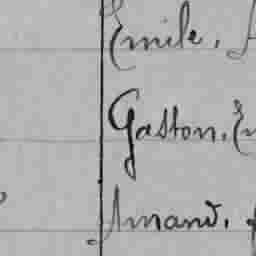 Emile,
Gaston, E
Amand,